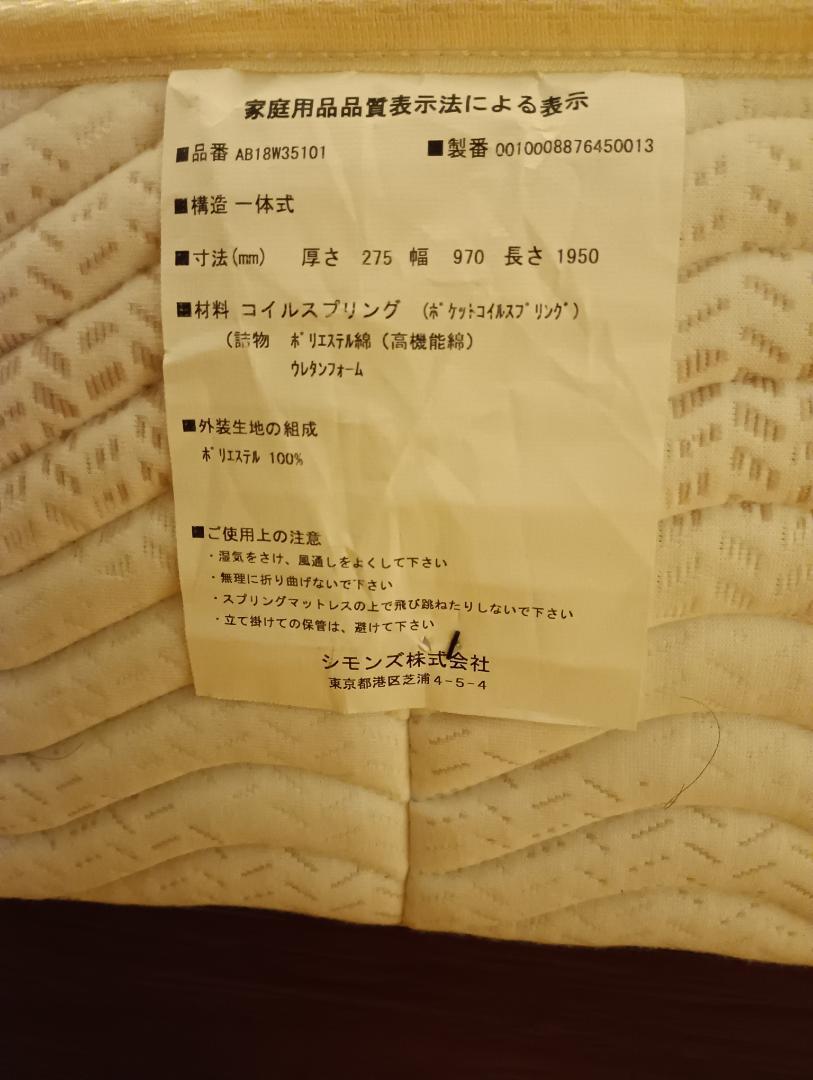 家庭用品品質表示法による表示
■品番 AB18W35101 ■製番 0010008876450013
■構造 一体式
■寸法(mm) 厚さ 275 幅 970 長さ 1950
■材料 コイルスプリング (ﾎﾟｹｯﾄｺｲﾙｽﾌﾟﾘﾝｸﾞ)
(詰物 ﾎﾟﾘｴｽﾃﾙ綿(高機能綿)
ｳﾚﾀﾝﾌｫｰﾑ
■外装生地の組成
ﾎﾟﾘｴｽﾃﾙ 100%
■ご使用上の注意
・湿気をさけ、風通しをよくして下さい
・無理に折り曲げないで下さい
・スプリングマットレスの上で飛び跳ねたりしないで下さい
・立て掛けての保管は、避けて下さい
シモンズ株式会社
東京都港区芝浦4-5-4